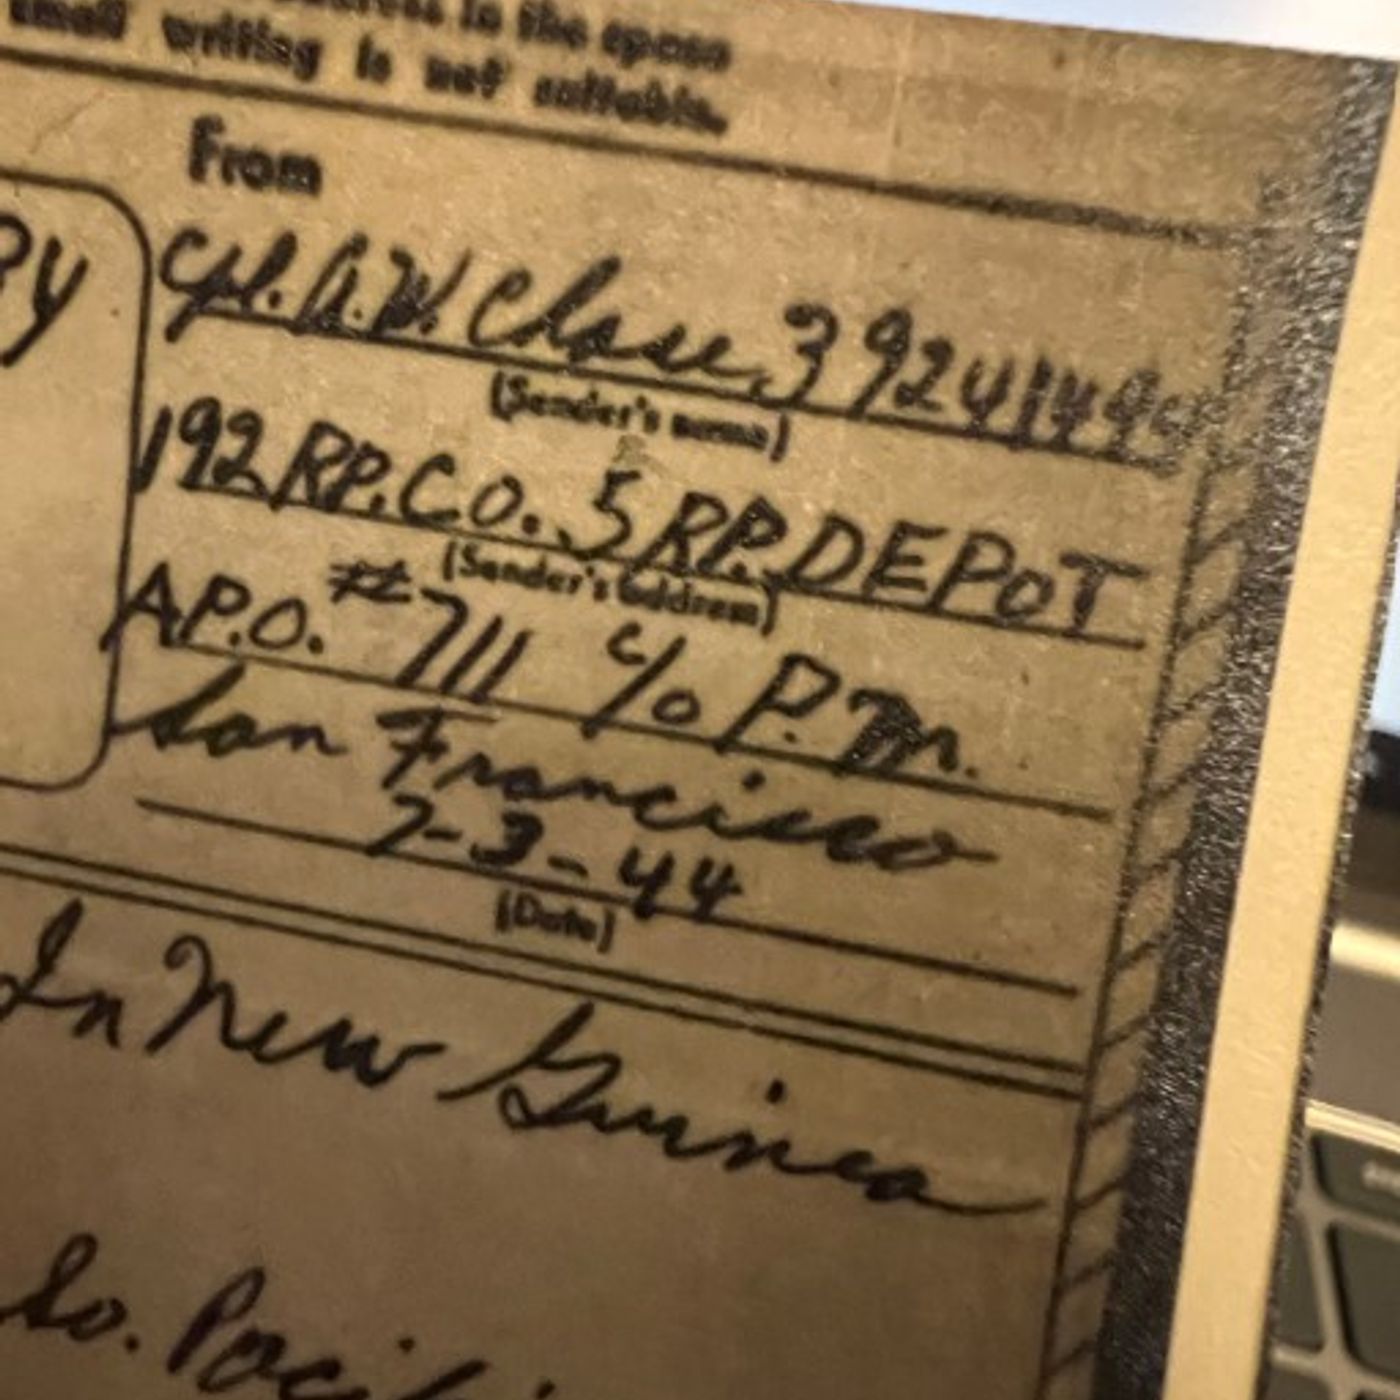 address in the space
small writing is not suitable.
From
RY
Cpl. A.W. Chase,
(Sender's name)
192 RP. CO. 5 RP. DEPOT
(Sender's address)
A.P.O. #711 c/o P.M.
San Francisco
7-3-44
(Date)
In New Guinea
So. Pacifi